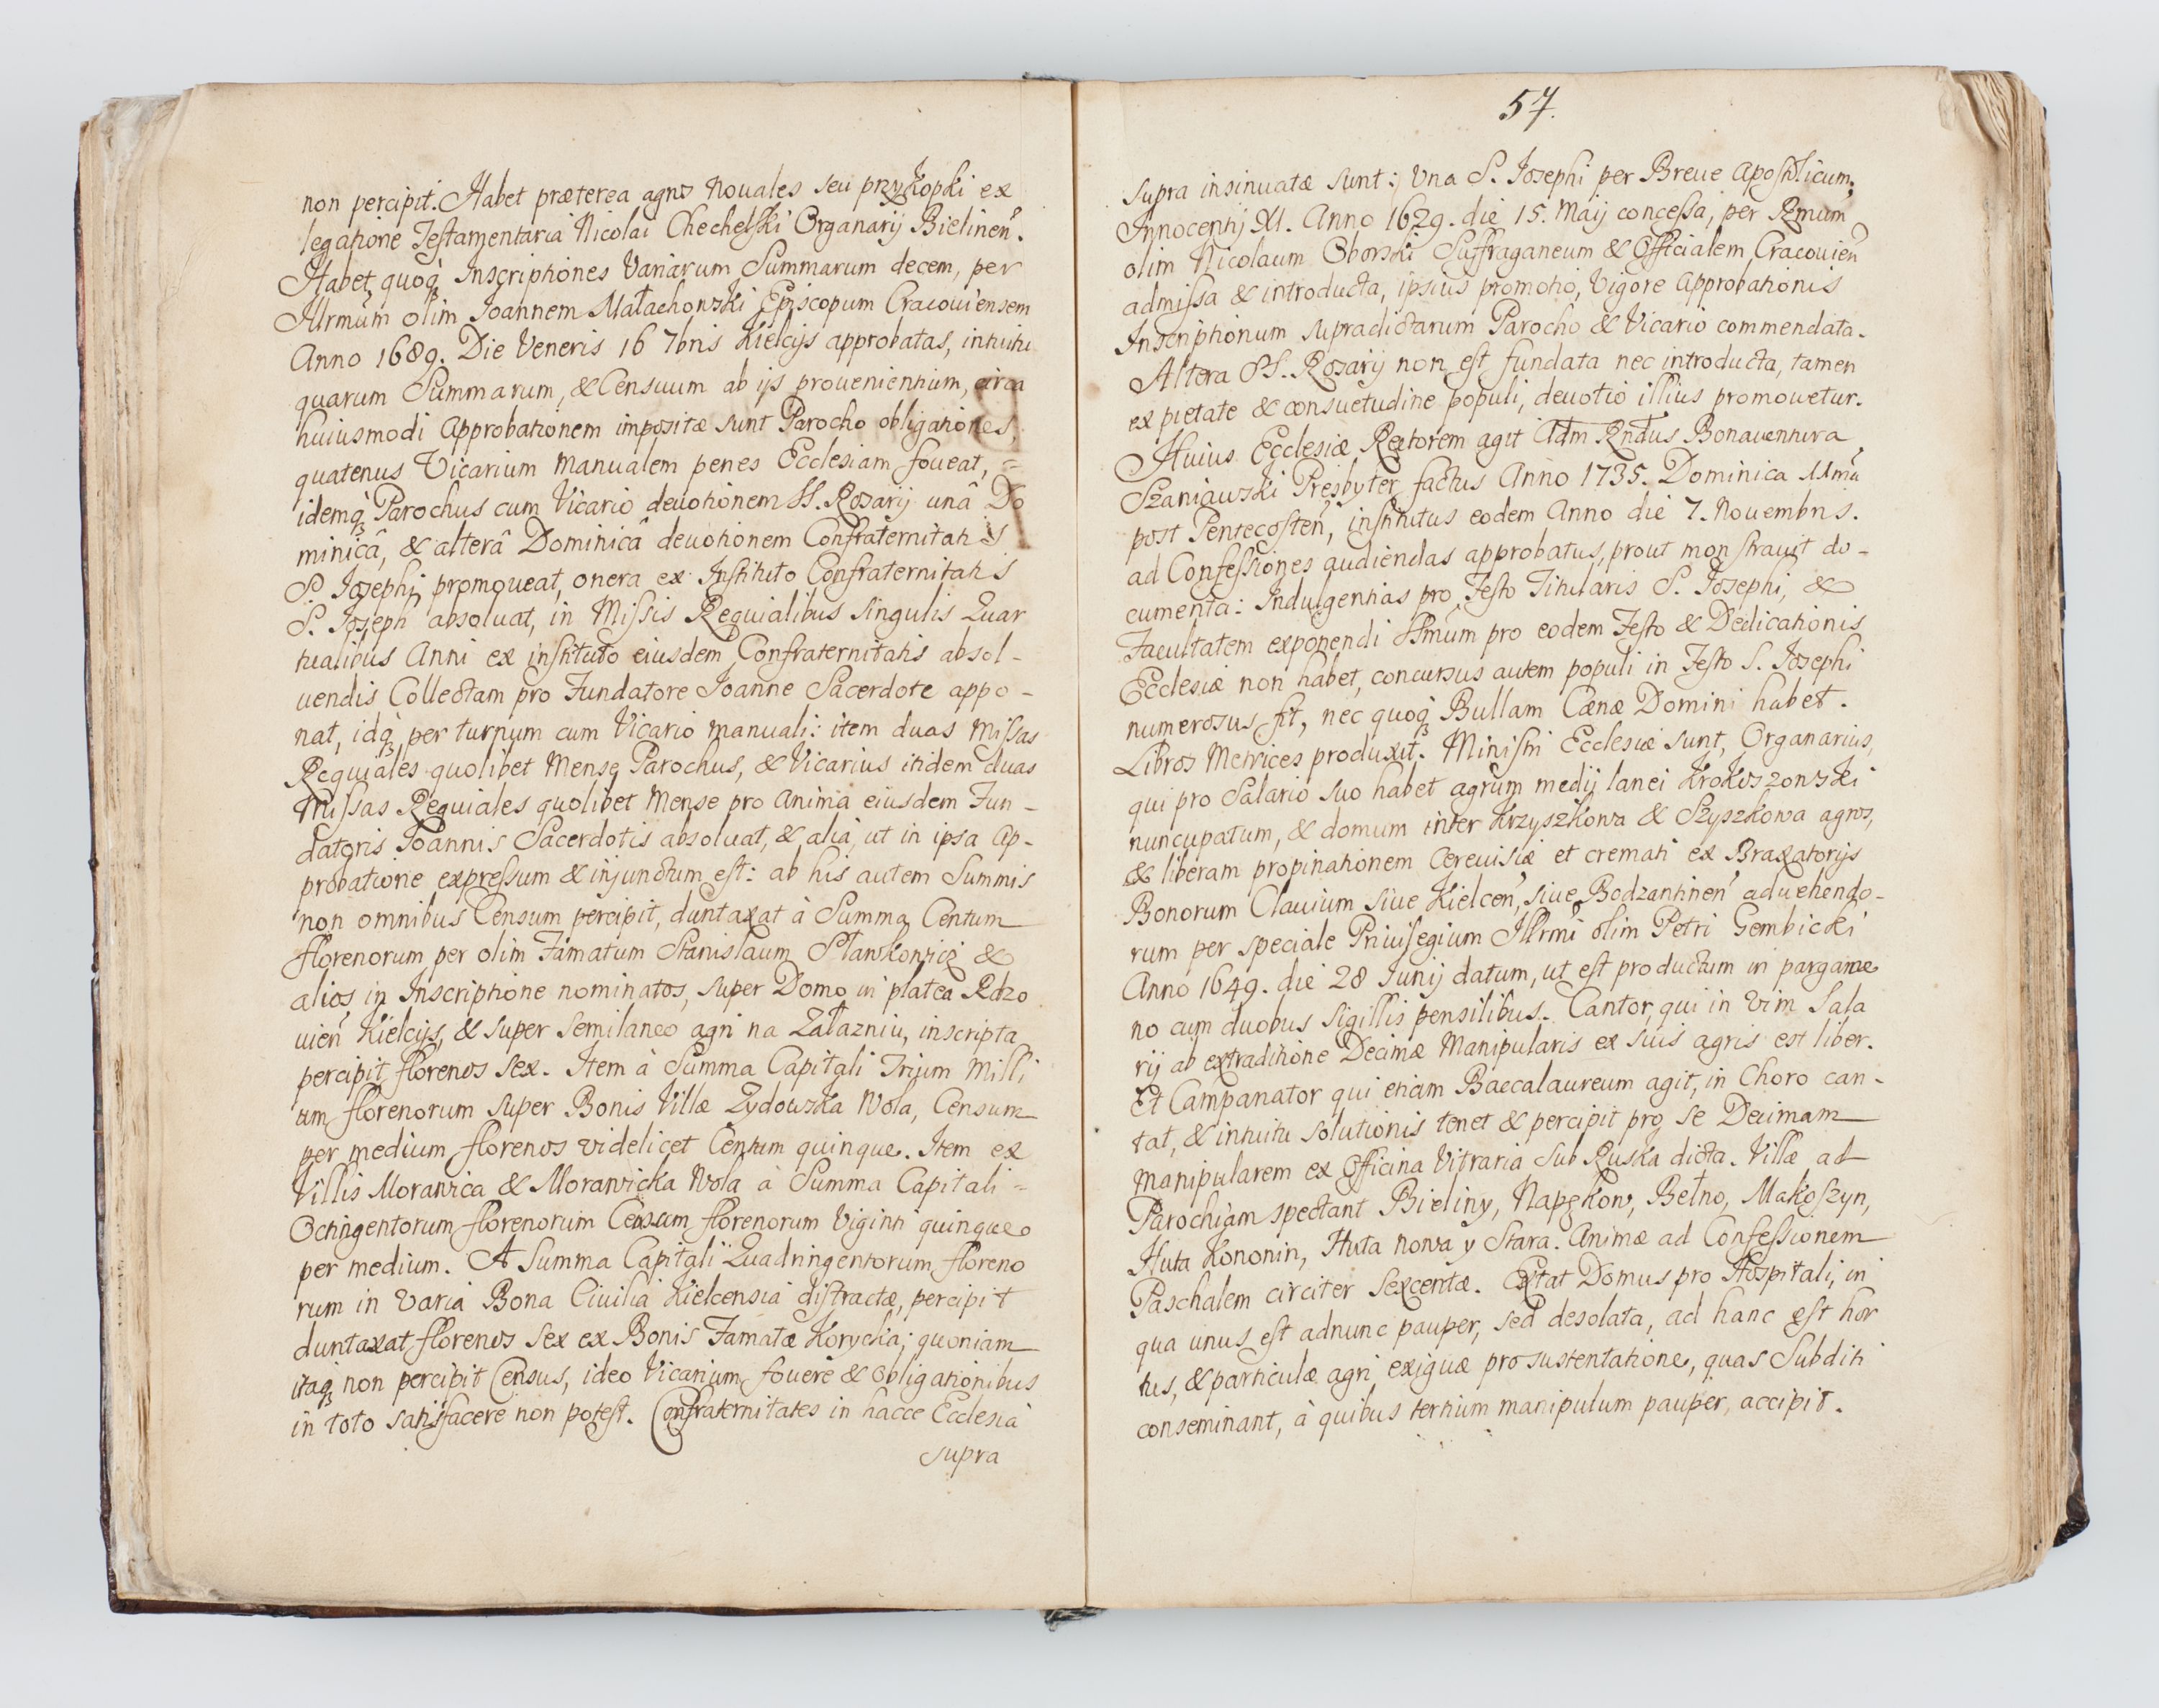 non percipit. Habet præterea agros Novales seu przykopki ex
legatione Testamentaria Nicolai Chechelski Organarij Bielinen.
Habet quoq; Inscriptiones Variarum Summarum decem, per
Illrmum olim Joannem Małachowski Episcopum Cracoviensem
Anno 1689. Die Veneris 16 7bris Kielcijs approbatas, intuitu
quarum Summarum, & Censuum ab ijs provenientium, circa
huiusmodi Approbationem impositæ sunt Parocho obligationes,
quatenus Vicarium Manualem penes Ecclesiam foveat, =
idemq; Parochus cum Vicario devotionem SS. Rosarij unâ Do
minicâ, & alterâ Dominicâ devotionem Confraternitatis
S. Josephi promoveat, onera ex Instituto Confraternitatis
S. Joseph absoluat, in Missis Requialibus singulis Quar
tualibus Anni ex instituto eiusdem Confraternitatis absol-
uendis Collectam pro Fundatore Joanne Sacerdote appo-
nat, idq; per turnum cum Vicario manuali: item duas Missas
Requiales quolibet Mense Parochus, & Vicarius itidem duas
Missas Requiales quolibet Mense pro Anima eiusdem Fun-
datoris Joannis Sacerdotis absoluat, & alia, ut in ipsa Ap-
probatione expressum & injunctum est: ab his autem Summis
non omnibus Censum percipit, duntaxat à Summa Centum
florenorum per olim Famatum Stanislaum Sławkowicz &
alios in Inscriptione nominatos, super Domo in platea Rdzo
uien Kielcijs, & super semilaneo agri na Załazniu, inscripta
percipit florenos sex. Item à Summa Capitali Trium Milli
um florenorum super Bonis Villæ Zydowska Wola, Censum
per medium florenos videlicet Centum quinque. Item ex
Villis Morawica & Morawicka Wola à Summa Capitali =
Octingentorum florenorum Censum florenorum Viginti quinque
per medium. A Summa Capitali Quadringentorum floreno
rum in varia Bona Civilia Kielcensia distractæ, percipit
duntaxat florenos sex ex Bonis Famatæ Korycka; quoniam
itaq; non percipit Census, ideo Vicarium fovere & obligationibus
in toto satisfacere non potest. Confraternitates in hacce Ecclesia
supra
57.
supra insinuatæ sunt: Una S. Josephi per Breve Apostolicum
Innocentij XI. Anno 1629. die 15. Maij concessa, per Rmum
olim Nicolaum Oborski Suffraganeum & Officialem Cracovien
admissa & introducta, ipsius promotio, Vigore Approbationis
Inscriptionum supradictarum Parocho & Vicario commendata.
Altera SS. Rosarij non est fundata nec introducta, tamen
ex pietate & consuetudine populi, devotio illius promovetur.
Huius Ecclesiæ Rectorem agit Adm Rndus Bonaventura
Szaniawski Presbyter factus Anno 1735. Dominica
post Pentecosten, institutus eodem Anno die 7. Novembris.
ad Confessiones audiendas approbatus, prout monstravit do-
cumenta: Indulgentias pro Festo Titularis S. Josephi, &
Facultatem exponendi SSmum pro eodem Festo & Dedicationis
Ecclesiæ non habet, concursus autem populi in Festo S. Josephi
numerosus fit, nec quoq; Bullam Cænæ Domini habet.
Libros Metrices produxit. Ministri Ecclesiæ sunt, Organarius,
qui pro Salario suo habet agrum medij lanei Krokoszowski
nuncupatum, & domum inter Krzyszkowa & Szyszkowa agros,
& liberam propinationem Cerevisiæ et cremati ex Braxatorijs
Bonorum Clavium sive Kielcen, sive Bodzantinen advehendo-
rum per speciale Privilegium Illrmi olim Petri Gembicki
Anno 1649. die 28 Junij datum, ut est productum in pargame
no cum duobus sigillis pensilibus. Cantor, qui in vim Sala
rij ab extraditione Decimæ Manipularis ex suis agris est liber.
Et Campanator qui etiam Baccalaureum agit, in Choro can-
tat, & intuitu solutionis tenet & percipit pro se Decimam
manipularem ex Officina Vitraria Sub Ruska dicta. Villæ ad
Parochiam spectant Bieliny, Napękow, Bełno, Makoszyn,
Huta Kononin, Huta Nowa y Stara. Animæ ad Confessionem
Paschalem circiter sexcentæ. Extat Domus pro Hospitali, in
qua unus est adnunc pauper, sed desolata, ad hanc est hor
tus, & particulæ agri exiguæ pro sustentatione, quas Subditi
conseminant, à quibus tertium manipulum pauper, accipit.